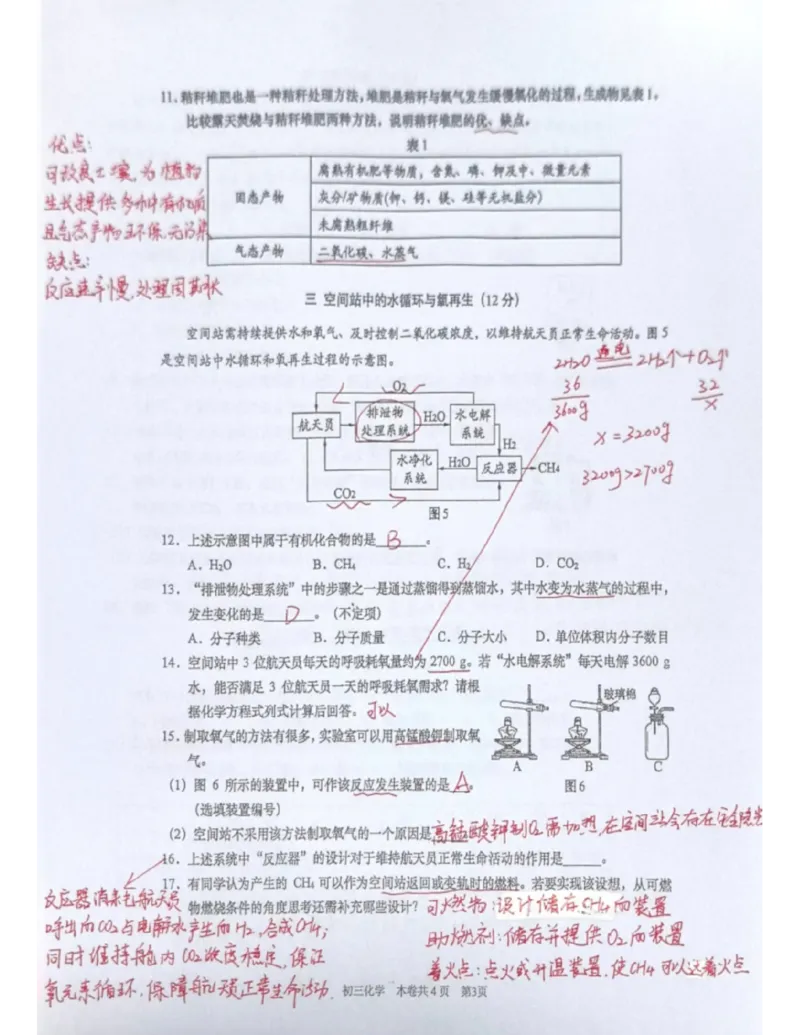 11. 秸秆堆肥也是一种秸秆处理方法，堆肥是秸秆与氧气发生缓慢氧化的过程，生成物见表1。
比较露天焚烧与秸秆堆肥两种方法，说明秸秆堆肥的优、缺点。
优点：
可改良土壤，为植物
生长提供多种有机质
且气态产物环保，无污染
缺点：
反应速率慢，处理周期长
表1
固态产物
腐熟有机肥等物质，含氮、磷、钾及中、微量元素
灰分/矿物质(钾、钙、镁、硅等无机盐分)
未腐熟粗纤维
气态产物
二氧化碳、水蒸气
三 空间站中的水循环与氧再生（12分）
空间站需持续提供水和氧气、及时控制二氧化碳浓度，以维持航天员正常生命活动。图5
是空间站中水循环和氧再生过程的示意图。
2H₂O 通电 2H₂↑+O₂↑
36 32
3600g x
x=3200g
3200g>2700g
O₂
航天员
排泄物
处理系统
H₂O
水电解
系统
H₂
水净化
系统
H₂O
反应器
CH₄
CO₂
图5
12. 上述示意图中属于有机化合物的是 B 。
A. H₂O B. CH₄ C. H₂ D. CO₂
13. “排泄物处理系统”中的步骤之一是通过蒸馏得到蒸馏水，其中水变为水蒸气的过程中，
发生变化的是 D 。（不定项）
A. 分子种类 B. 分子质量 C. 分子大小 D. 单位体积内分子数目
14. 空间站中3位航天员每天的呼吸耗氧量约为2700 g。若“水电解系统”每天电解3600 g
水，能否满足3位航天员一天的呼吸耗氧需求？请根
据化学方程式列式计算后回答。可以
15. 制取氧气的方法有很多，实验室可以用高锰酸钾制取氧
气。
玻璃棉
A B C
图6
(1) 图6所示的装置中，可作该反应发生装置的是 A 。
(选填装置编号)
(2) 空间站不采用该方法制取氧气的一个原因是 高锰酸钾制O₂需加热，在空间站会存在安全隐患
16. 上述系统中“反应器”的设计对于维持航天员正常生命活动的作用是 。
反应器消耗航天员
呼出的CO₂与电解水产生的H₂，合成CH₄；
同时维持舱内CO₂浓度稳定，保证
氧元素循环，保障航天员正常生命活动.
17. 有同学认为产生的CH₄可以作为空间站返回或变轨时的燃料。若要实现该设想，从可燃
物燃烧条件的角度思考还需补充哪些设计？可燃物：设计储存CH₄的装置
助燃剂：储存并提供O₂的装置
着火点：点火或升温装置，使CH₄可以达着火点
初三化学 本卷共4页 第3页